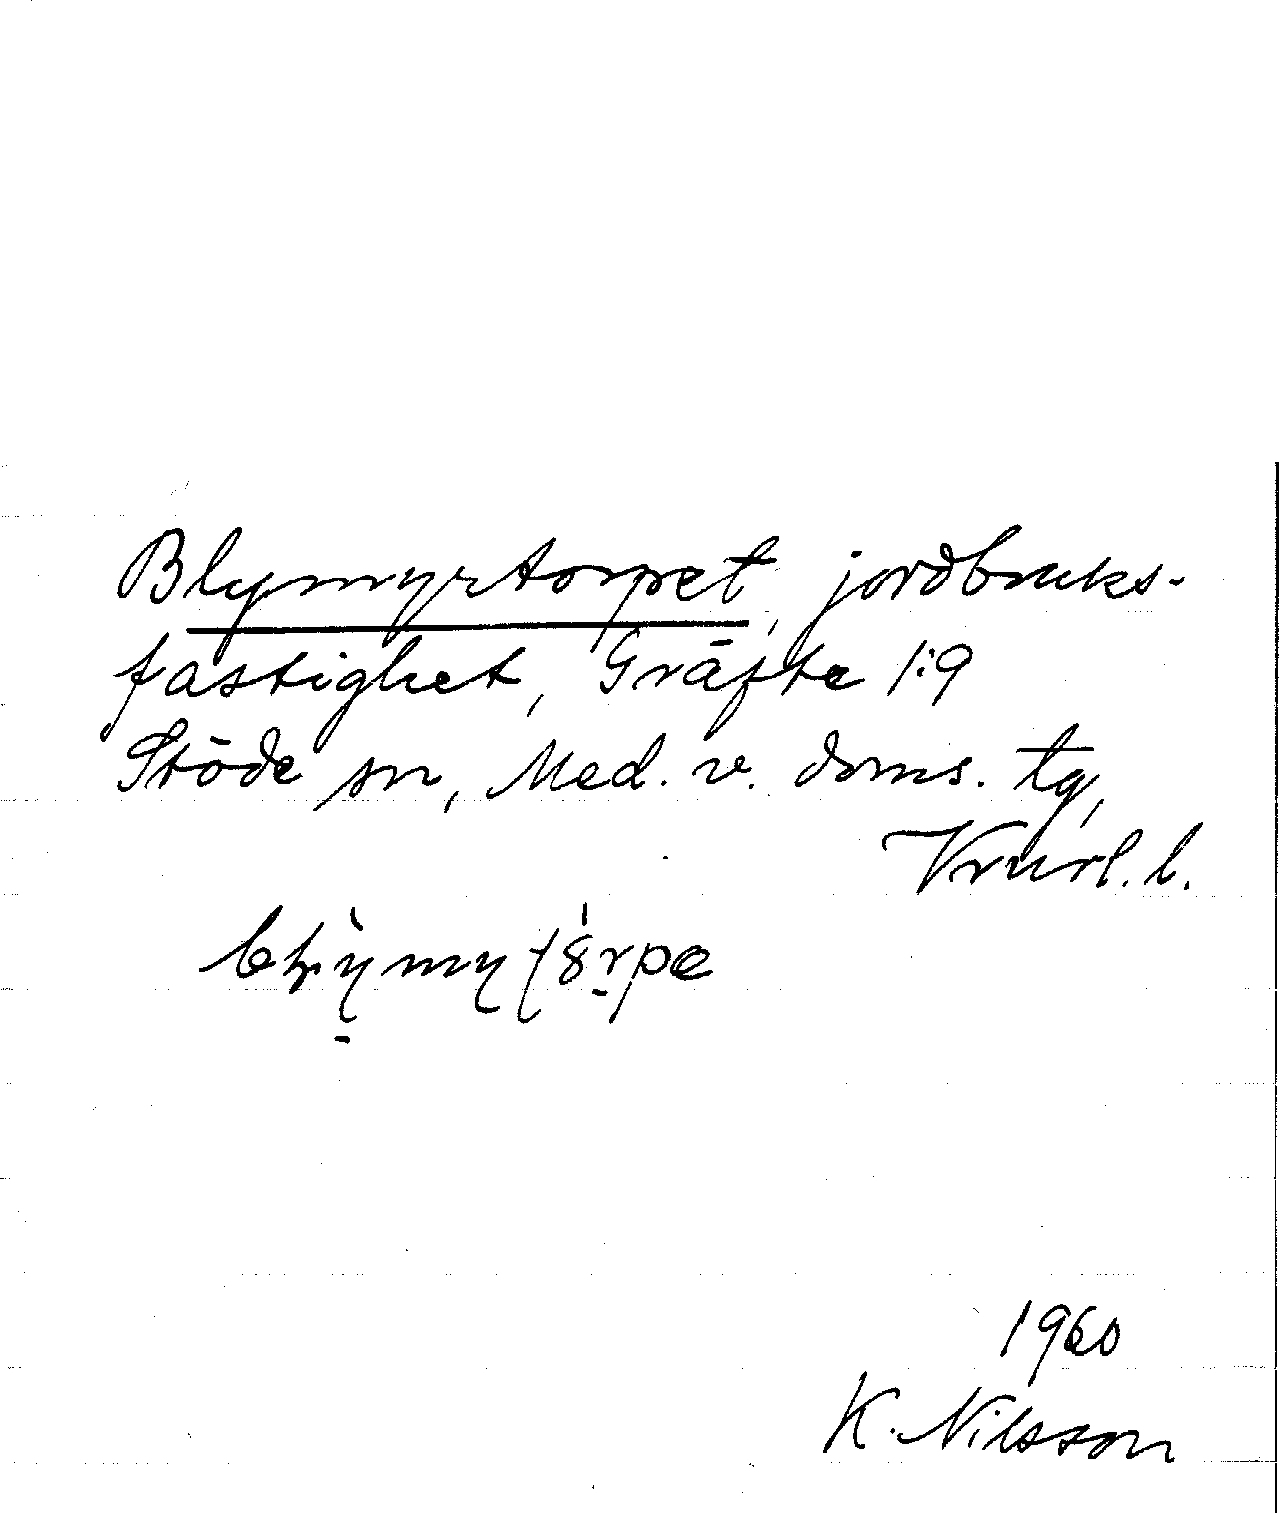 Blymyrtorpet, jordbruks-
fastighet, Gräfte 1:9
Stöde sn, Med. v. doms. tg,
Vrnrl. l.
1960
K. Nilsson